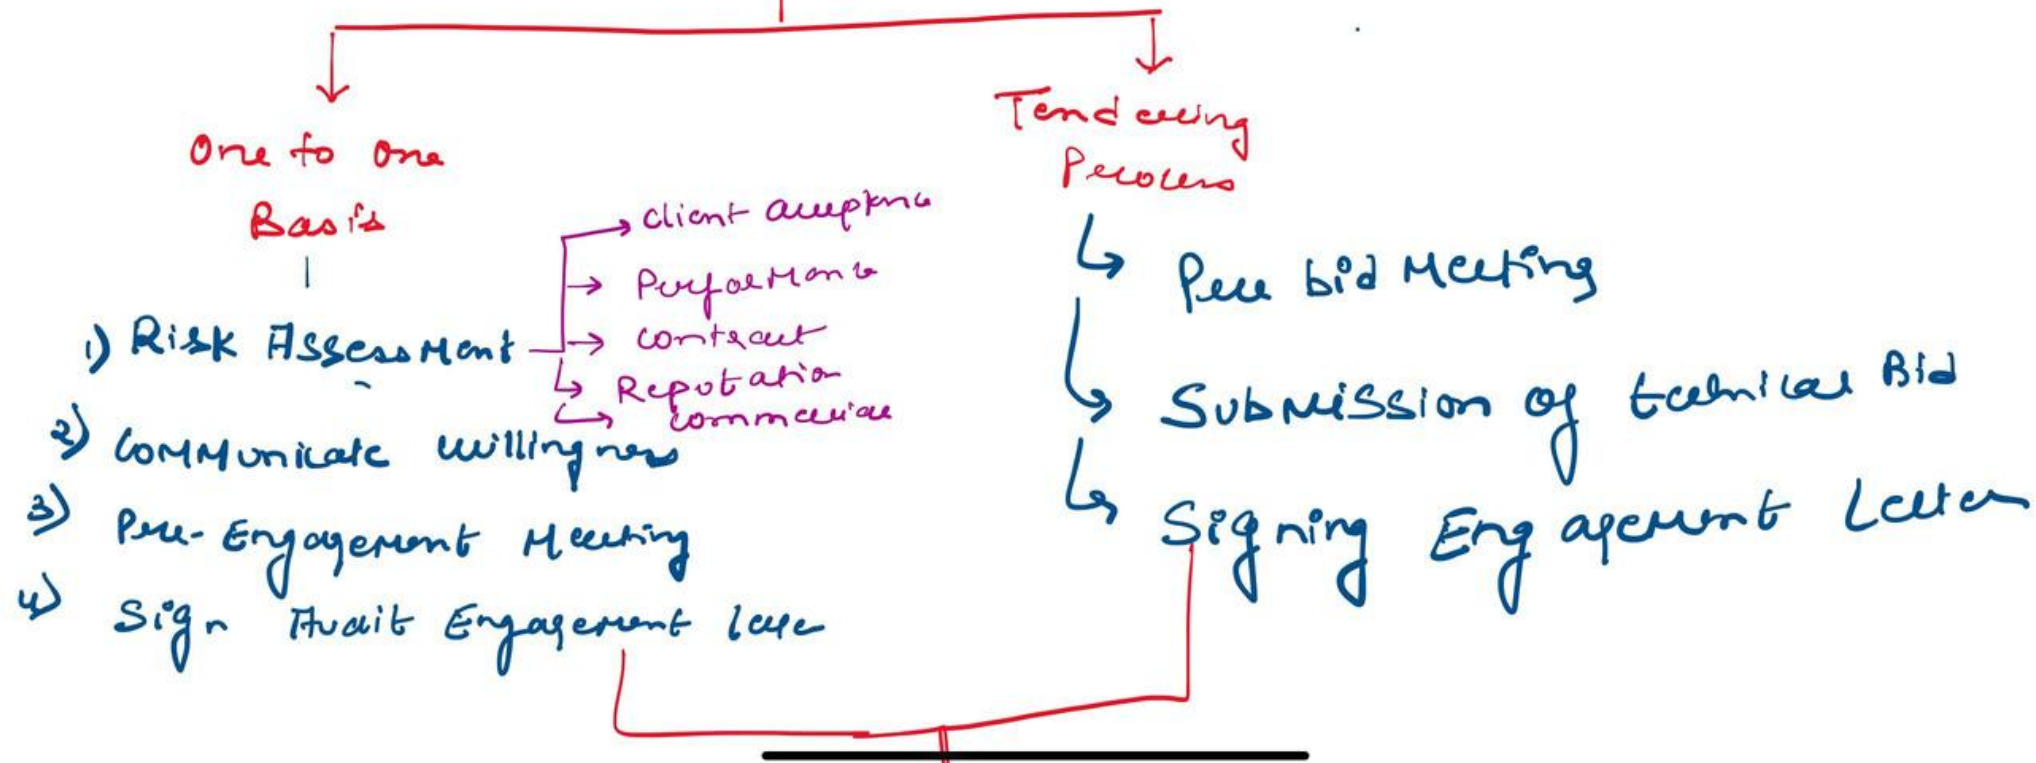 One to One
Basis
1) Risk Assessment
Client acceptance
Performance
Contract
Reputation
Commercial
2) Communicate willingness
3) Pre-Engagement Meeting
4) Sign Audit Engagement letter
Tendering
Process
Pre bid Meeting
Submission of technical Bid
Signing Engagement Letter